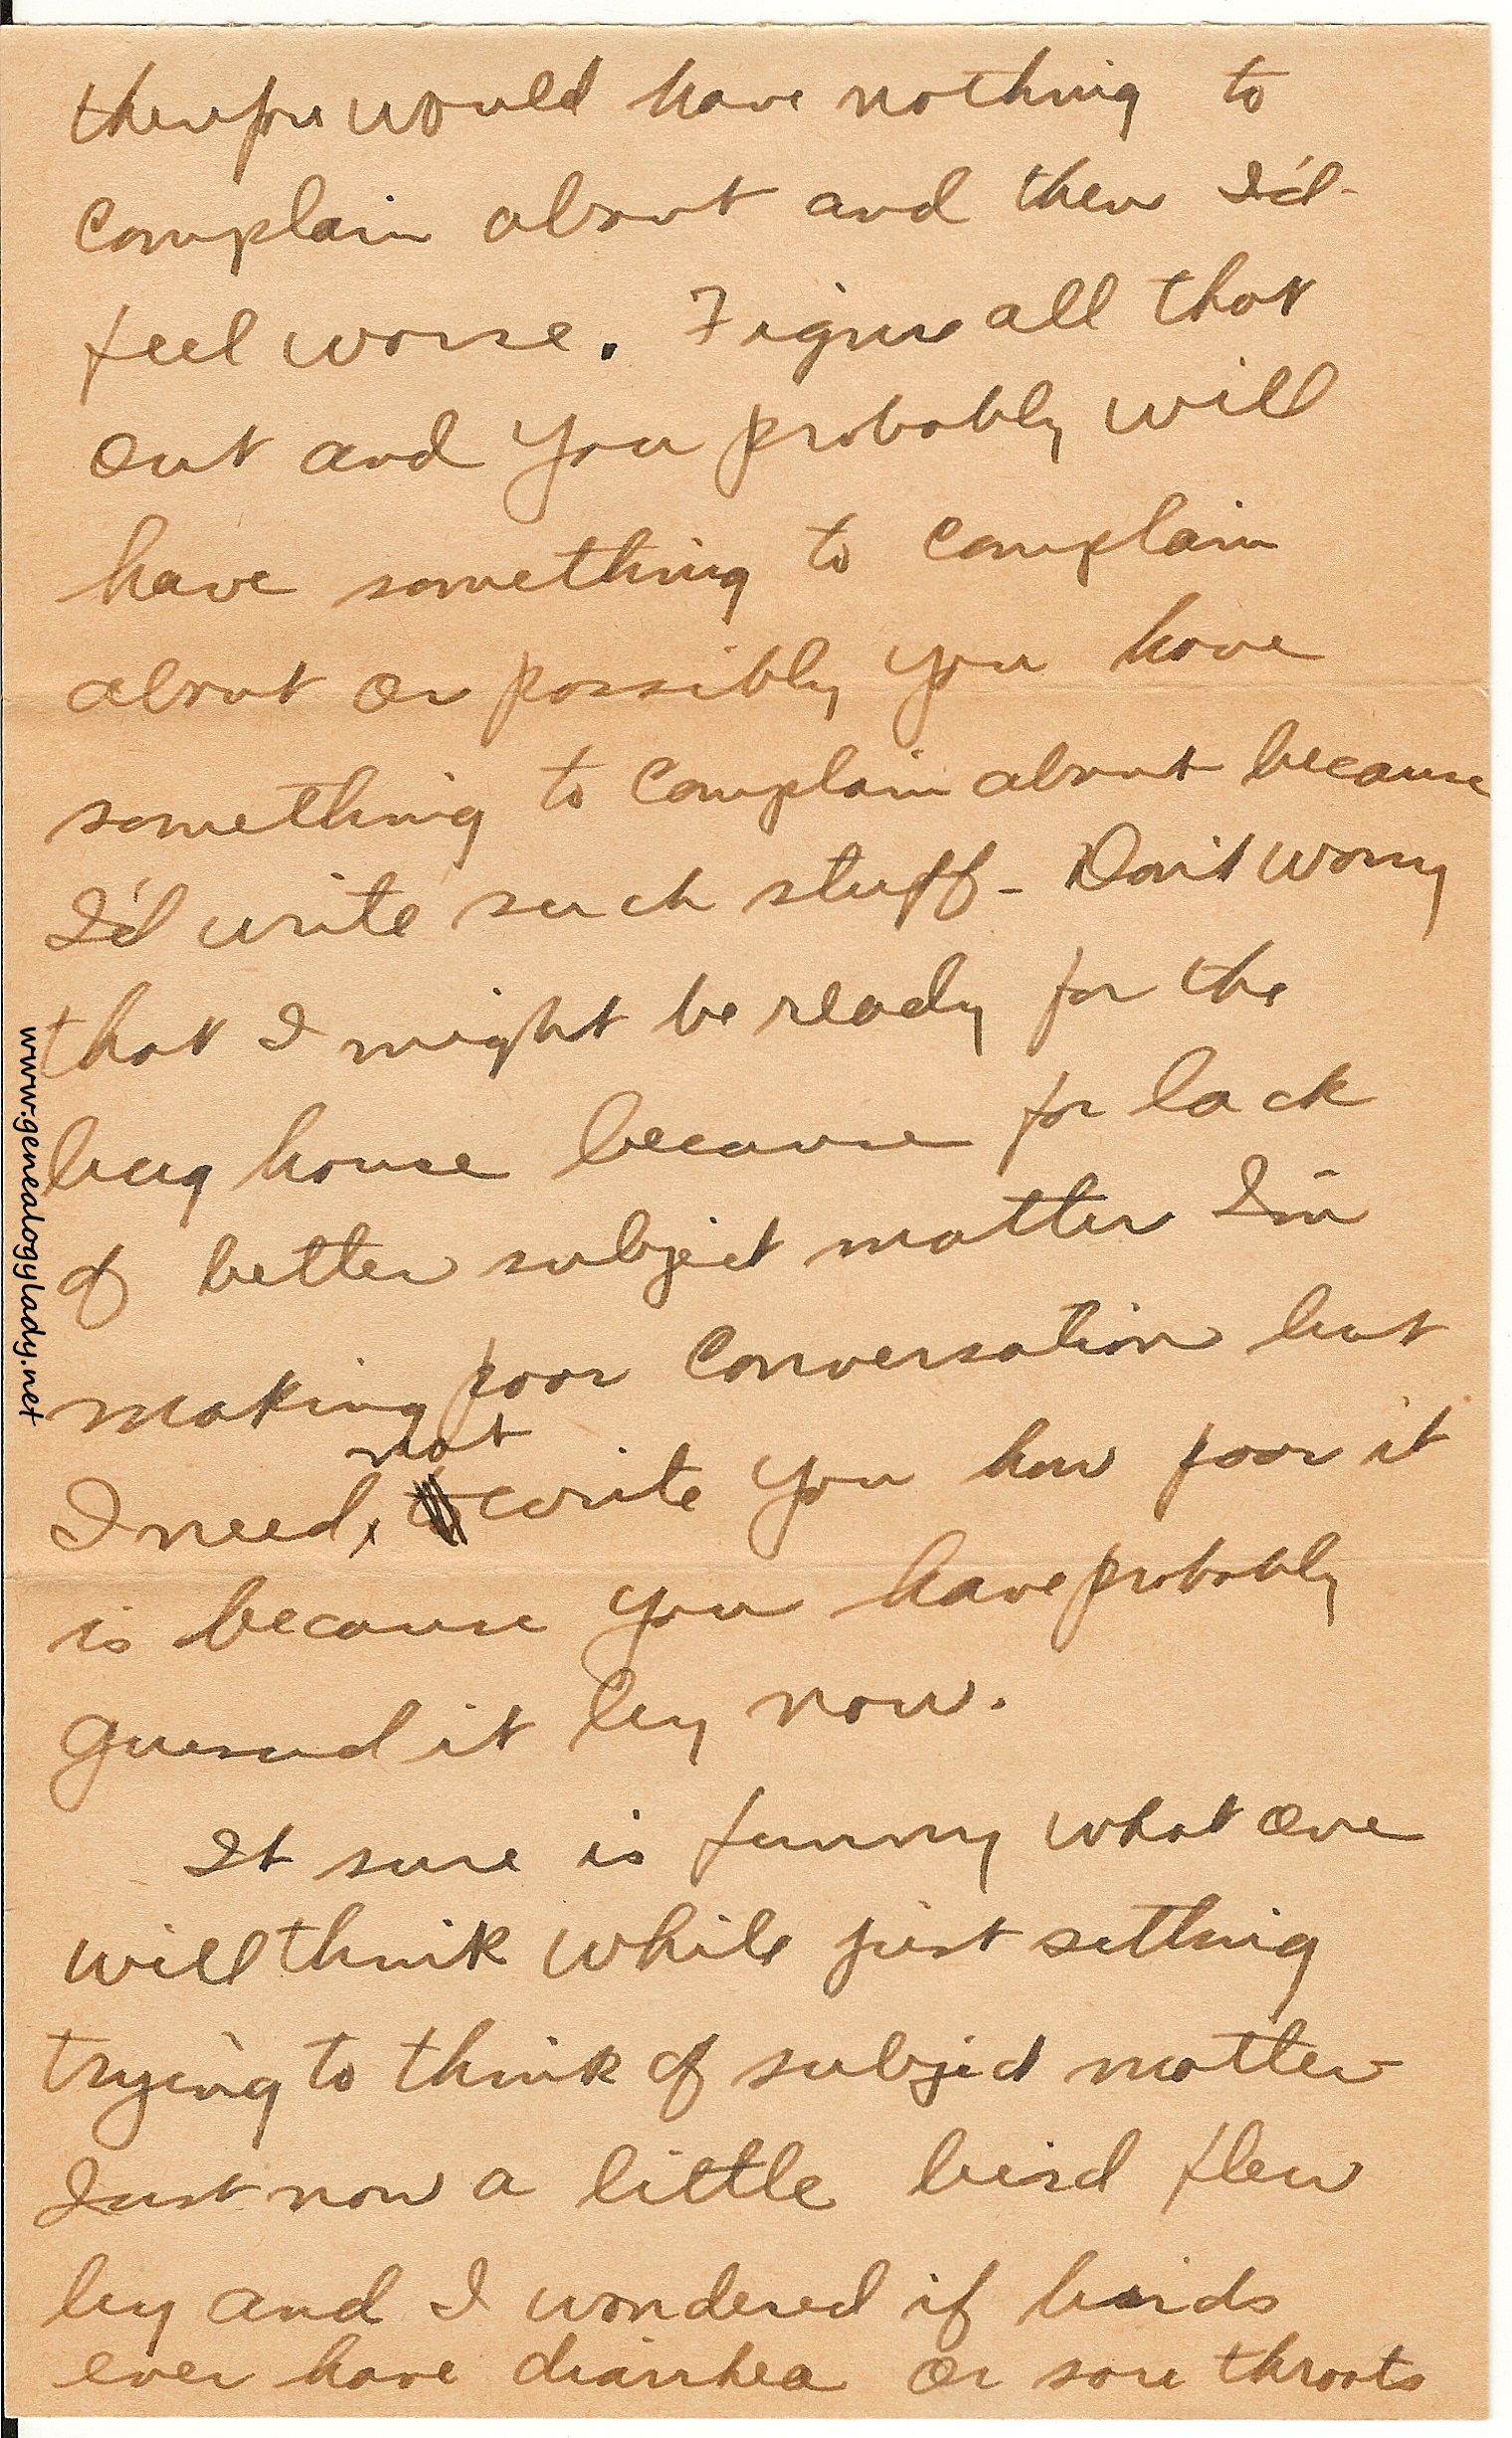 therefore would have nothing to
complain about and then I'd
feel worse. Figure all that
out and you probably will
have something to complain
about or possibly you have
something to complain about because
I'd write such stuff - Don't worry
that I might be ready for the
bug house because for lack
of better subject matter I'm
making poor conversation but
not
I need write you how poor it
is because you have probably
guessed it by now.
It sure is funny what one
will think while just setting
trying to think of subject matter
Just now a little bird flew
by and I wondered if birds
ever have diarrhea or sore throats
www.genealogylady.net